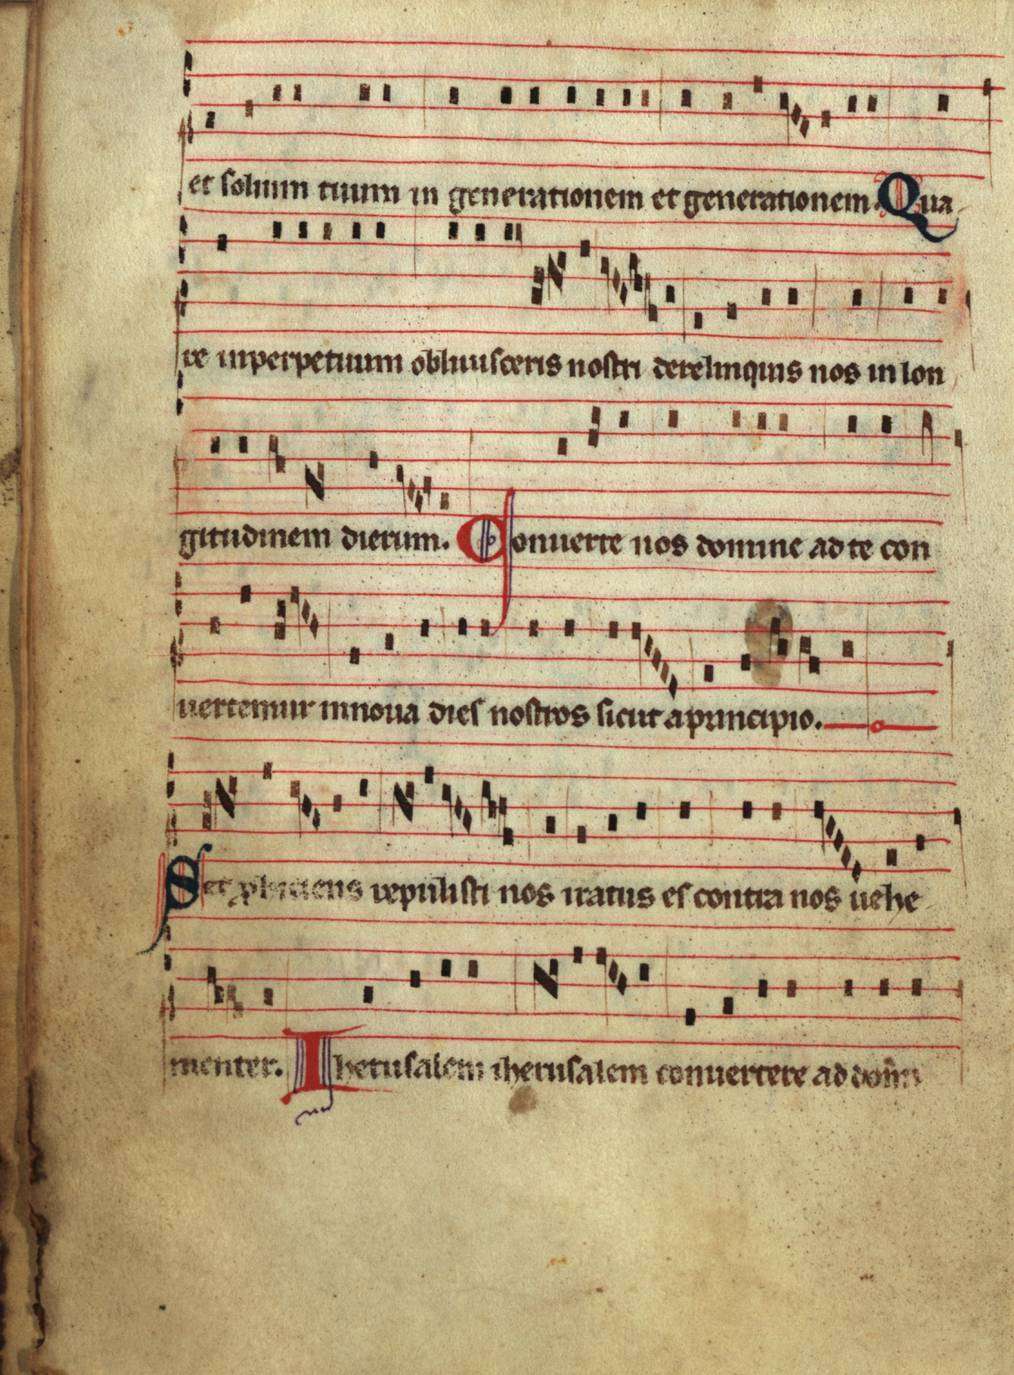 et solium tuum in generationem et generationem. Qua
re inperpetuum obliuisceris nostri derelinquis nos in lon
gitudinem dierum. Conuerte nos domine ad te con
uertemur innoua dies nostros sicut a principio.
Set proiciens repulisti nos iratus es contra nos uehe
menter. Iherusalem iherusalem conuertere ad dom̄